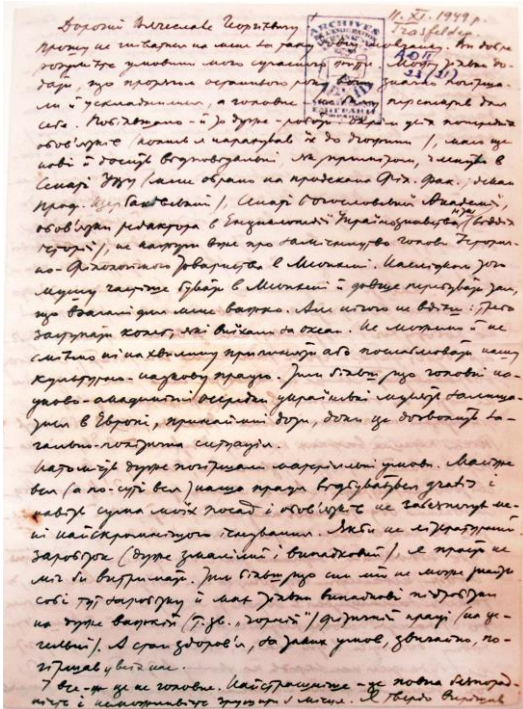 11. XI. 1949 р.
Дорогий Вячеславе Георгієвичу
Прошу не гніватись на мене за таку
розумієте умовини мого сучасного життя. Можу тільки до-
дати, що протягом останнього року вони значно погірша-
ли й ускладнились, а головне
себе. Побільшало – й то дуже – роботи. Окрім усіх попередніх
обов'язків, маю ще
нові й досить відповідальні. Як, приміром, членство в
Сенаті УВУ (мене обрано на продекана Філ. Фак., декан
проф. ), Сенаті Богословської Академії,
обов'язки редактора в Енциклопедії Українознавства (відділ
історії), не кажучи вже про заступництво голови Історич-
но-Філологічного Товариства в Мюнхені. Наслідком того
мушу частіше бувати в Мюнхені й довше перебувати там,
що взагалі для мене важко. Але нічого не вдієш: треба
заступати колег, які виїхали за океан. Не можемо й не
сміємо ні на хвилину припиняти або послаблювати нашу
культурно-наукову працю. Тим більш, що головні на-
уково-академічні осередки українські мусять залиша-
тися в Европі, принаймні доти, доки це дозволить за-
гально-політична ситуація.
Натомість дуже погіршали матеріяльні умови. Майже
вся (а по-суті вся) наша праця відбувається gratis і
навіть сума моїх посад і обов'язків не забезпечує ме-
ні найскромнішого існування. Якби не літературний
заробіток (дуже змалілий і випадковий), я просто не
міг би витримати. Тим більш, що син мій не може знайти
собі тут заробітку й має тільки випадкові підробітки
на дуже важкій (т. зв. „чорній") фізичній праці (на це-
гельні). А стан здоров'я, за таких умов, звичайно, по-
гіршав у всіх нас.
І все-ж це не головне. Найстрашніше – це повна безпорад-
ність і неможливість Я твердо вирішив